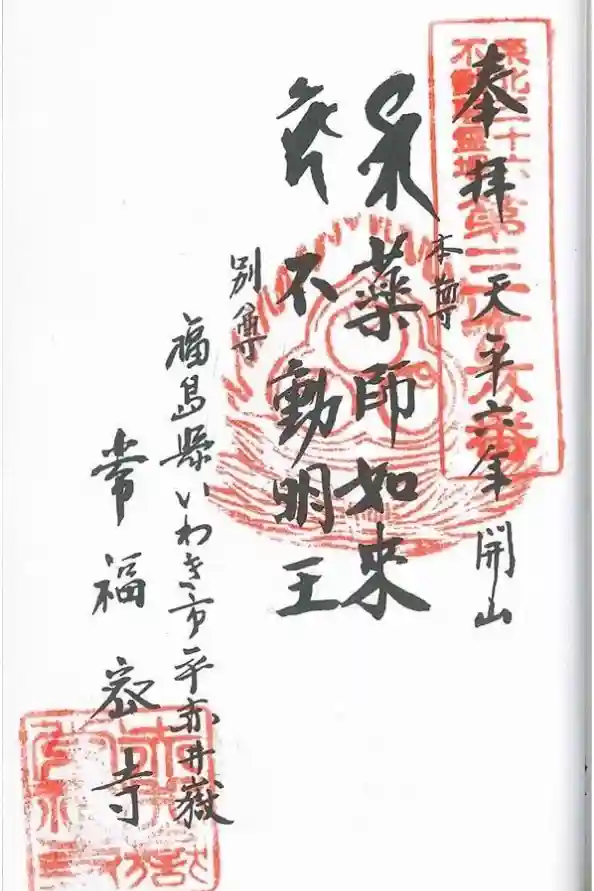 東北三十六
不動尊霊場
第三十六番
奉拝 天平六年 開山
本尊
薬師如来
不動明王
別尊
福島縣いわき市平赤井嶽
常福密寺